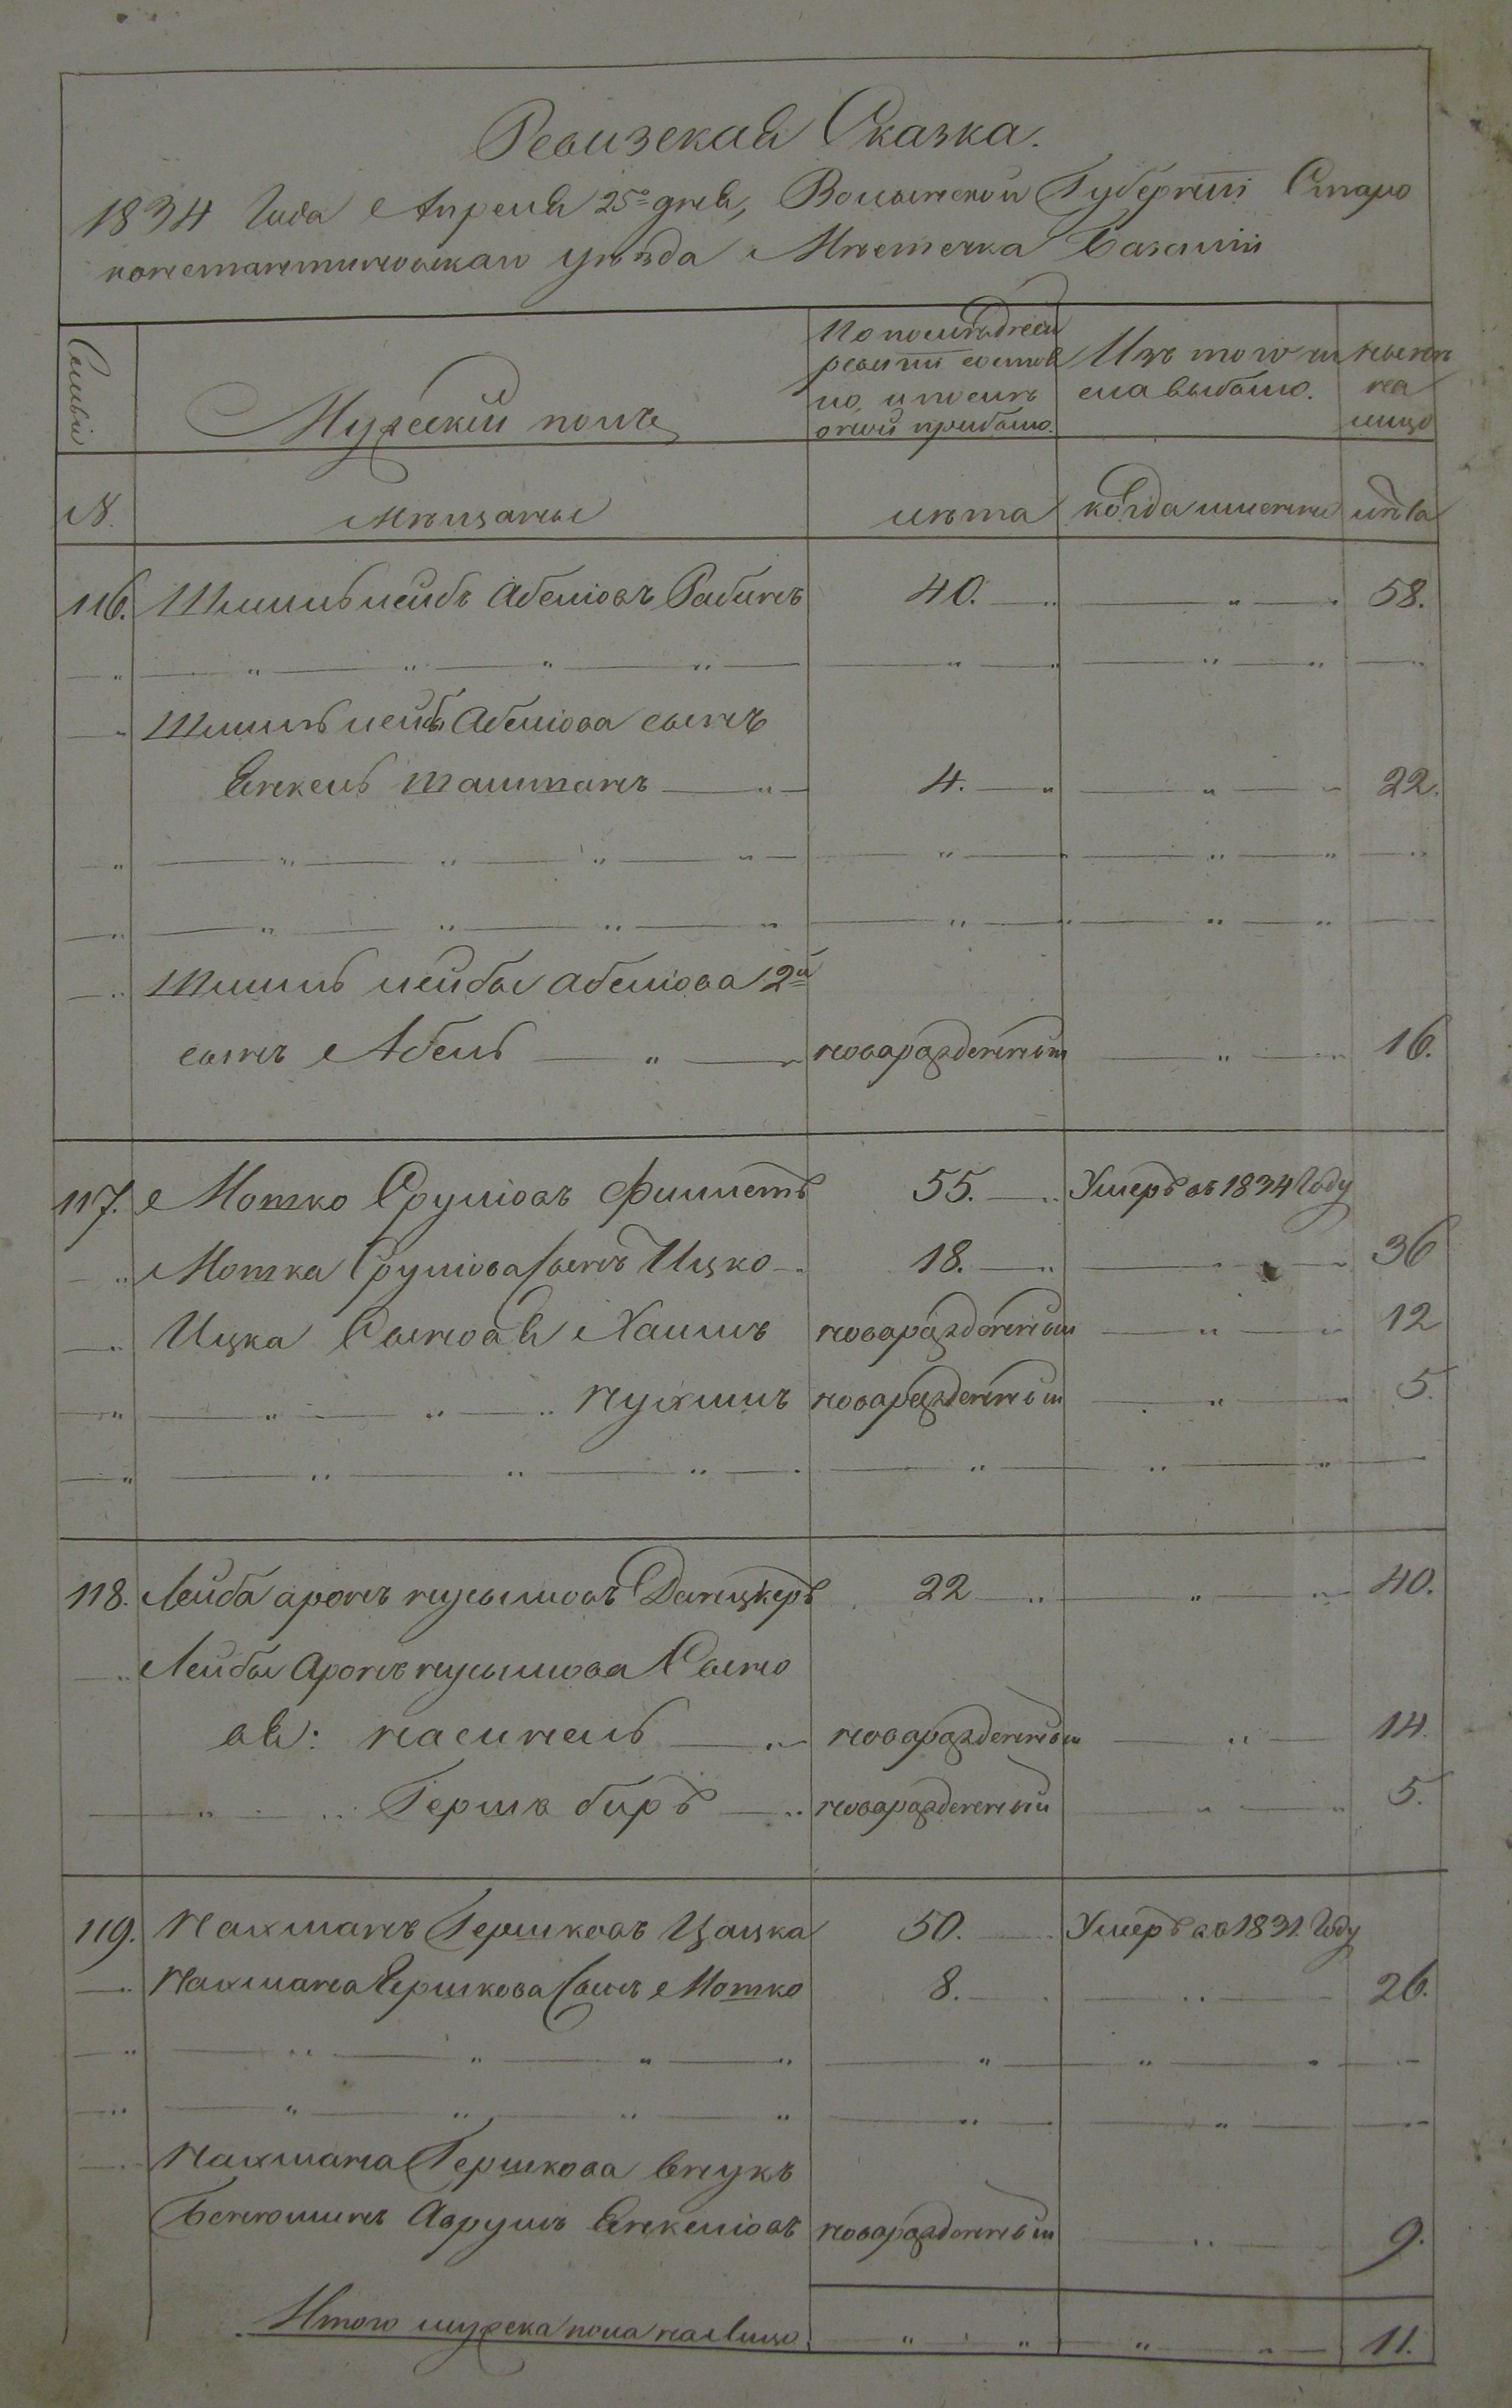 Ревизская Сказка.
1834 Года Апреля 25º дня, Волынской Губерніи Старо
константиновскаго уѣзда Мѣстечка Базаліи
Семьи
Мужескій полъ
По послѣдней
ревизіи состоя
ло и послѣ
оной прибыло.
Изъ того чи
сла выбыло.
нынѣ
на
лицо
N.
мѣщаны
лѣта
когда именно
лѣта
116. Шмиль лейбъ Абеліовъ Рабинъ 40. 58.
Шмиль лейбы Абеліова сынъ
Енкель Тантанъ 4. 22.
Шмиль лейбы Абеліова 2й
сынъ Абель новаразденный 16.
117. Мотко Сруліовъ 55. Умеръ въ 1834 Году
Мотка Сруліова Сынъ Ицко 18. 36
Ицка Сыновя Хаимъ новаразденный 12
Нухимъ новаразденный 5.
118. Лейба аронъ нусымовъ Данцкеръ 22 40.
Лейбы Аронъ нусымова Сыно
вя: насинель новаразденный 14.
Гершъ беръ новаразденный 5.
119. Нахманъ Гершковъ Цацка 50. Умеръ въ 1831. Году
Нахмана Гершкова Сынъ Мотко 8. 26.
Нахмана Гершкова внукъ
Бенюминъ Аврумъ Енкеліовъ новаразденный 9.
Итого мужеска пола налицо 11.